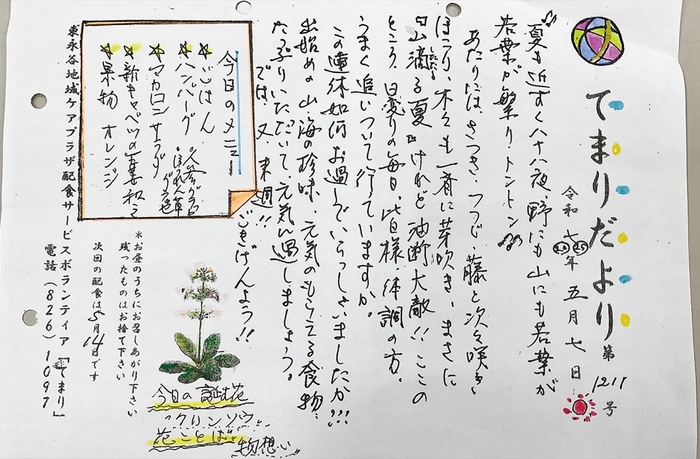 てまりだより 第1211号
令和七年 五月七日
2025
♪夏も近ずく八十八夜、野にも山にも若葉が
若葉が繁りトントン♪
あたりには、さつき、つつじ、藤と次々咲き
ほこり、木々も一斉に芽吹き、まさに
『山滴る夏』けれど油断大敵!!ここの
ところ、日変りの毎日、皆様、体調の方、
うまく追いついて行ていますか。
この連休如何お過しでいらっしゃいましたか!!!
出始めの山海の珍味、元気のもらえる食物、
たっぷりいただいて、元気に過しましょう。
では又 来週!! ごきげんよう!!
今日のメニュー
☆ごはん
☆ハンバーグ 人参グラッセ
☆マカロニサラダ
☆新キャベツの和え
☆果物 オレンジ
*お昼のうちにお召しあがり下さい
残ったものはお捨て下さい
次回の配食は5月14日です
東永谷地域ケアプラザ配食サービスボランティア「てまり」
電話(826)1097
今日の誕花
クリンソウ
花ことば
物想い